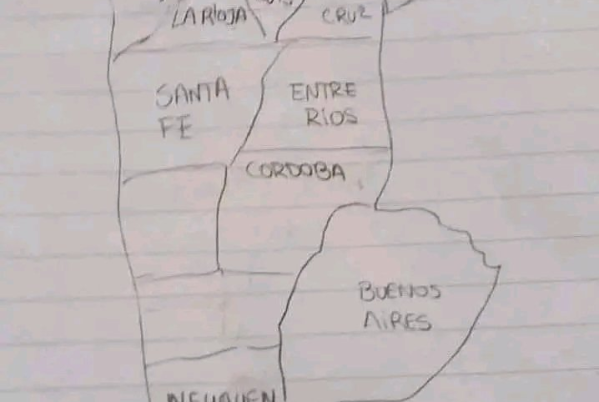 LARIOJA
CRUZ
SANTA
FE
ENTRE
RÍOS
CORDOBA
BUENOS
AIRES
NEUQUEN